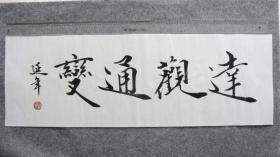 達觀通變
延年